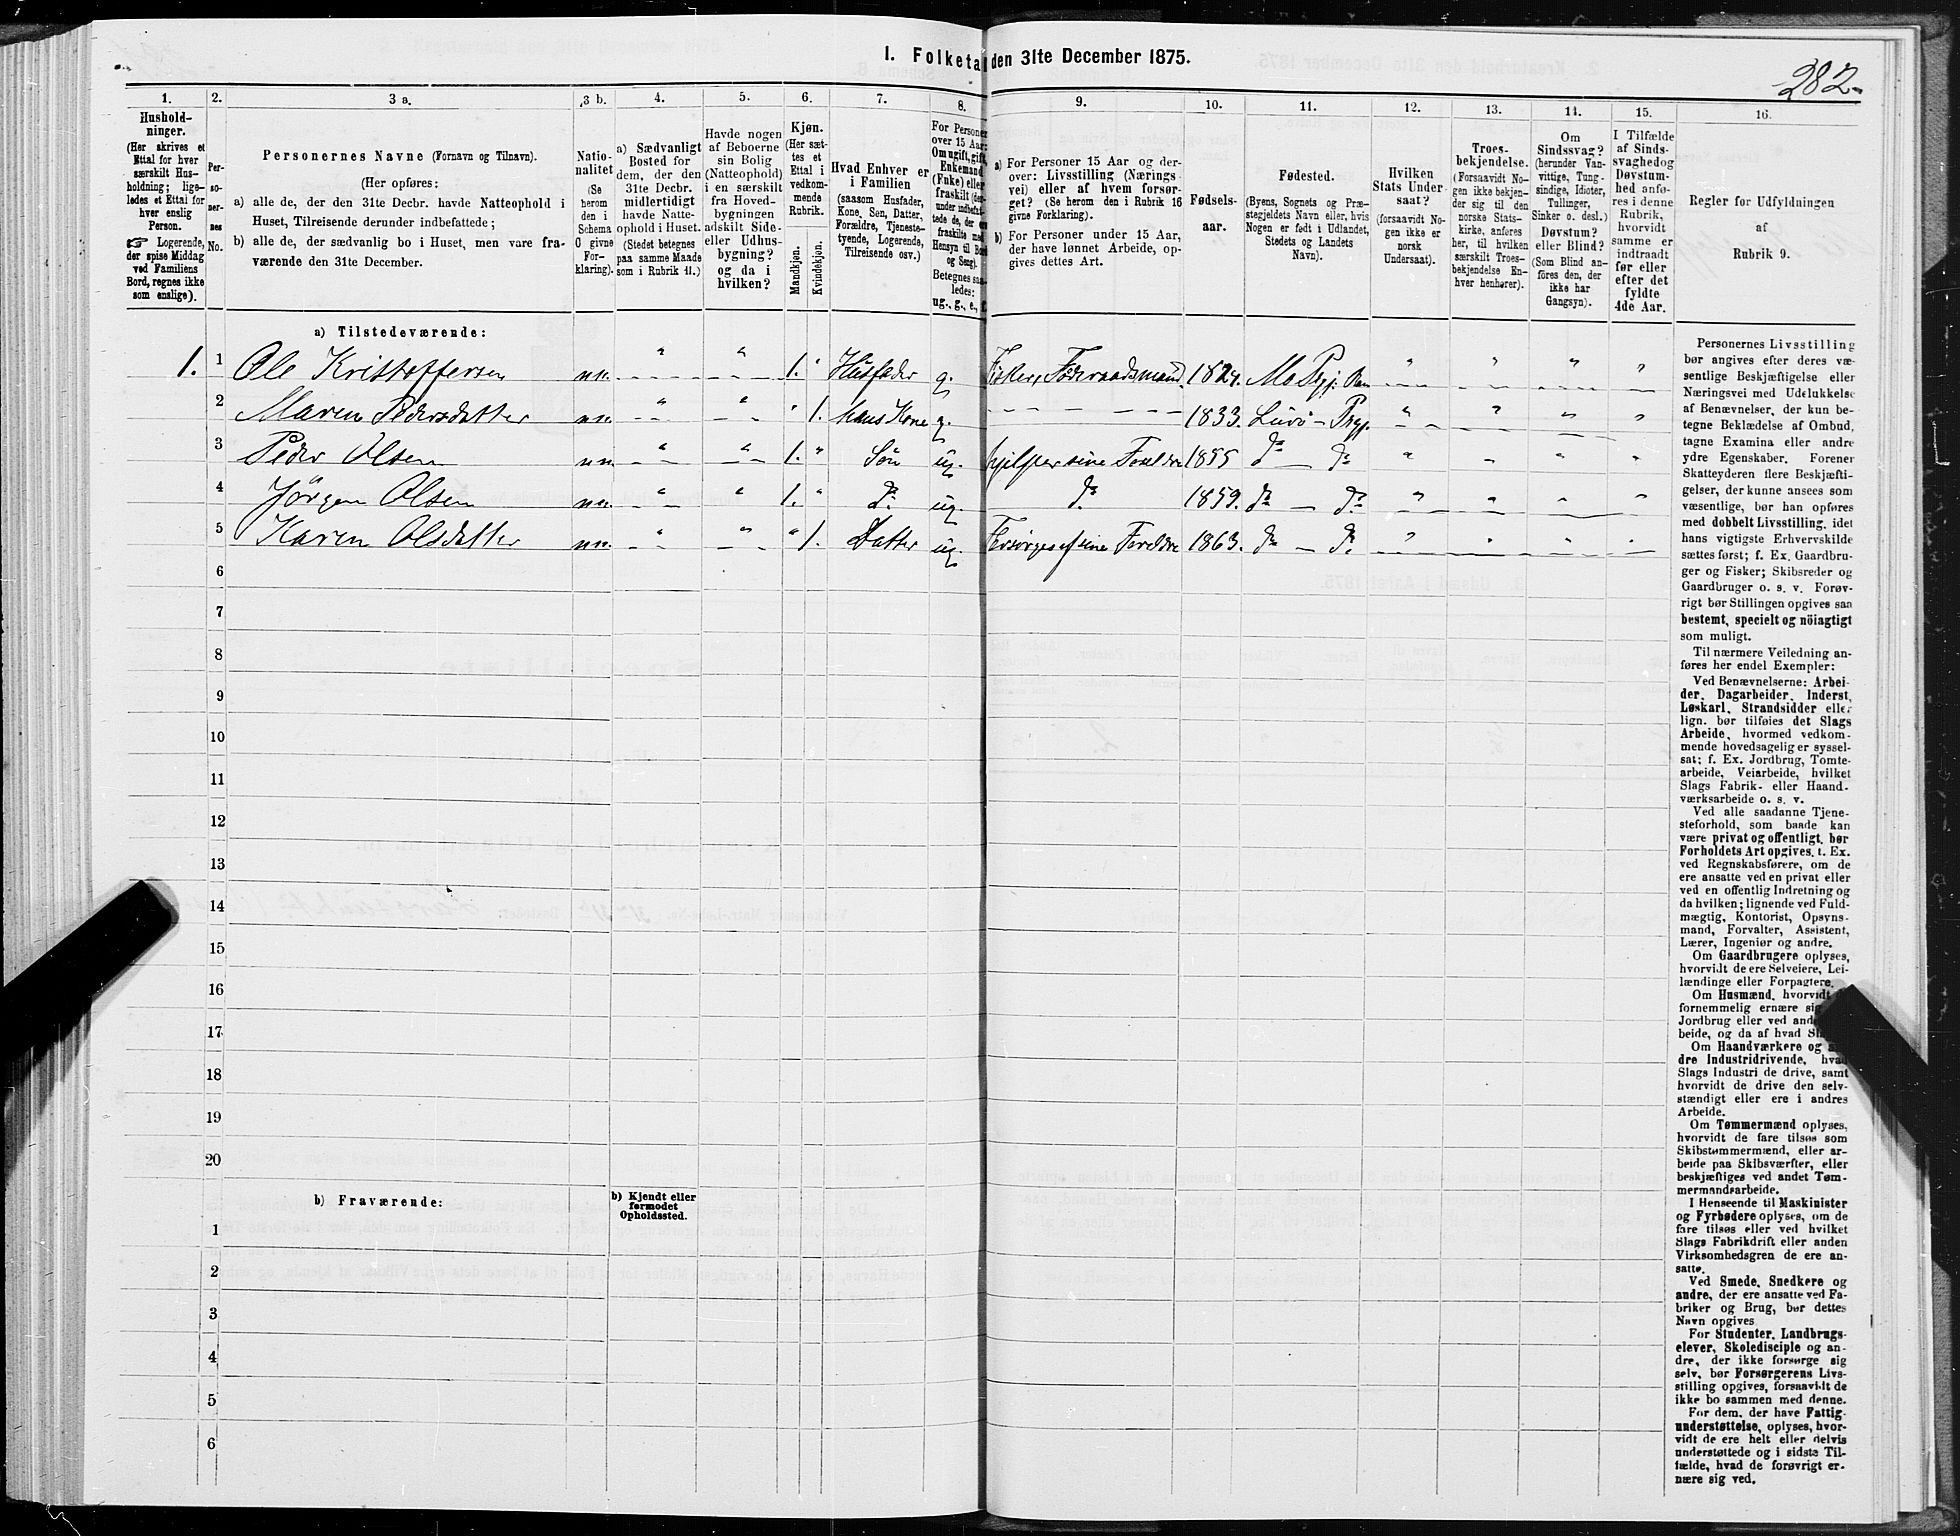 1. Folketal den 31te December 1875.
282.
1.
2.
3 a.
3 b.
4.
5.
6.
7.
8.
9.
10.
11.
12.
13.
14.
15.
16.
Hushold-
ninger.
(Her skrives et
Ettal for hver
særskilt Hus-
holdning; lige-
ledes et Ettal for
hver enslig
Person.
☞ Logerende,
der spise Middag
ved Familiens
Bord, regnes ikke
som enslige).
Per-
so-
ner-
nes
No.
Personernes Navne (Fornavn og Tilnavn).
(Her opføres:
a) alle de, der den 31te Decbr. havde Natteophold i
Huset, Tilreisende derunder indbefattede;
b) alle de, der sædvanlig bo i Huset, men vare fra-
værende den 31te December.
Natio-
nalitet
(Se
herom
den i
Schema
O givne
For-
klaring).
a) Sædvanligt
Bosted for
dem, der den
31te Decbr.
midlertidigt
havde Natte-
ophold i Huset.
(Stedet betegnes
paa samme Maade
som i Rubrik 11.)
Havde nogen
af Beboerne
sin Bolig
(Natteophold)
i en særskilt
fra Hoved-
bygningen
adskilt Side-
eller Udhus-
bygning?
og da i
hvilken?
Kjøn.
(Her sæt-
tes et
Ettal i
vedkom-
mende
Rubrik.
Mandkjøn.
Kvindekjøn.
Hvad Enhver er
i Familien
(saasom Husfader,
Kone, Søn, Datter,
Forældre, Tjeneste-
tyende, Logerende,
Tilreisende osv.)
For Personer
over 15 Aar:
Om ugift, gift,
Enkemand
(Enke) eller
fraskilt (der-
under indbefat-
tede de, der ere
fraskilte med
Hensyn til Bord
og Seng).
Betegnes saa-
ledes:
ug., g., e., f.
a) For Personer 15 Aar og der-
over: Livsstilling (Nærings-
vei) eller af hvem forsør-
get? (Se herom den i Rubrik 16
givne Forklaring).
b) For Personer under 15 Aar,
der have lønnet Arbeide, op-
gives dettes Art.
Fødsels-
aar.
Fødested.
(Byens, Sognets og Præ-
stegjeldets Navn eller, hvis
Nogen er født i Udlandet,
Stedets og Landets
Navn).
Hvilken
Stats Under-
saat?
(forsaavidt No-
gen ikke er
norsk
Undersaat).
Troes-
bekjendelse.
(Forsaavidt No-
gen ikke bekjen-
der sig til den
norske Stats-
kirke, anføres
her, til hvilken
særskilt Troes-
bekjendelse En-
hver henhører).
Om
Sindssvag?
(herunder Van-
vittige, Tung-
sindige, Idioter,
Tullinger,
Sinker o. desl.)
Døvstum?
eller Blind?
(Som Blind an-
føres den, der
ikke har
Gangsyn).
I Tilfælde
af Sinds-
svaghedog
Døvstum-
hed anfø-
res i denne
Rubrik,
hvorvidt
samme er
indtraadt
før eller
efter det
fyldte
4de Aar.
Regler for Udfyldningen
af
Rubrik 9.
a) Tilstedeværende:
1. 1 Ole Kristoffersen nn. " " 1. " Husfader g. Fisker, Føderaadsmand. 1824. Mo Pgj. Ran " " " "
2 Maren Pedersdatter nn. " " " 1. hans Kone g. 1833. Lurø Pgj. " " " "
3 Peder Olsen nn. " " 1. " Søn ug. hjelper sine Foreldre 1855 do do " " " "
4 Jörgen Olsen nn. " " 1. " do ug. do 1859. do do " " " "
5 Karen Olsdatter nn. " " " 1. Datter ug. Forsørges af sine Foreldre 1863. do do " " " "
6
7
8
9
10
11
12
13
14
15
16
17
18
19
20
b) Fraværende:
b) Kjendt eller
formodet
Opholdssted.
1
2
3
4
5
6
Personernes Livsstilling
bør angives efter deres væ-
sentlige Beskjæftigelse eller
Næringsvei med Udelukkelse
af Benævnelser, der kun be-
tegne Beklædelse af Ombud,
tagne Examina eller andre
ydre Egenskaber. Forener
Skatteyderen flere Beskjæfti-
gelser, der kunne ansees som
væsentlige, bør han opføres
med dobbelt Livsstilling, idet
hans vigtigste Erhvervskilde
sættes først; f. Ex. Gaardbru-
ger og Fisker; Skibsreder og
Gaardbruger o. s. v. Forøv-
rigt bør Stillingen opgives saa
bestemt, specielt og nöiagtigt
som muligt.
Til nærmere Veiledning an-
føres her endel Exempler:
Ved Benævnelserne: Arbei-
der, Dagarbeider, Inderst,
Løskarl, Strandsidder eller
lign. bør tilføies det Slags
Arbeide, hvormed vedkom-
mende hovedsagelig er syssel-
sat; f. Ex. Jordbrug, Tomte-
arbeide, Veiarbeide, hvilket
Slags Fabrik- eller Haand-
værksarbeide o. s. v.
Ved alle saadanne Tjene-
steforhold, som baade kan
være privat og offentligt, bør
Forholdets Art opgives, t. Ex.
ved Regnskabsførere, om de
ere ansatte ved en privat eller
ved en offentlig Indretning og
da hvilken; lignende ved Fuld-
mægtig, Kontorist, Opsyns-
mand, Forvalter, Assistent,
Lærer, Ingeniør og andre.
Om Gaardbrugere oplyses,
hvorvidt de ere Selveiere, Lei-
lændinge eller Forpagtere.
Om Husmænd, hvorvidt
fornemmelig ernære sig
Jordbrug eller ved and
beide, og da af hvad Sl
Om Haandværkere og
dre Industridrivende, hvad
Slags Industri de drive, samt
hvorvidt de drive den selv-
stændigt eller ere i andres
Arbeide.
Om Tømmermænd oplyses,
hvorvidt de fare tilsøs som
Skibstømmermænd, eller ar-
beide paa Skibsværfter, eller
beskjæftiges ved andet Tøm-
mermandsarbeide.
I Henseende til Maskinister
og Fyrbødere oplyses, om de
fare tilsøs eller ved hvilket
Slags Fabrikdrift eller anden
Virksomhedsgren de ere an-
satte.
Ved Smede, Snedkere og
andre, der ere ansatte ved Fa-
briker og Brug, bør dettes
Navn opgives
For Studenter, Landbrugs-
elever, Skoledisciple og an-
dre, der ikke forsørge sig
selv, bør Forsørgerens Livs-
stilling opgives, forsaavidt de
ikke bo sammen med denne.
For dem, der have Fattig-
understøttelse, oplyses, hvor-
vidt de ere helt eller delvis
understøttede og i sidste Til-
fælde, hvad de forøvrigt er-
nære sig ved.